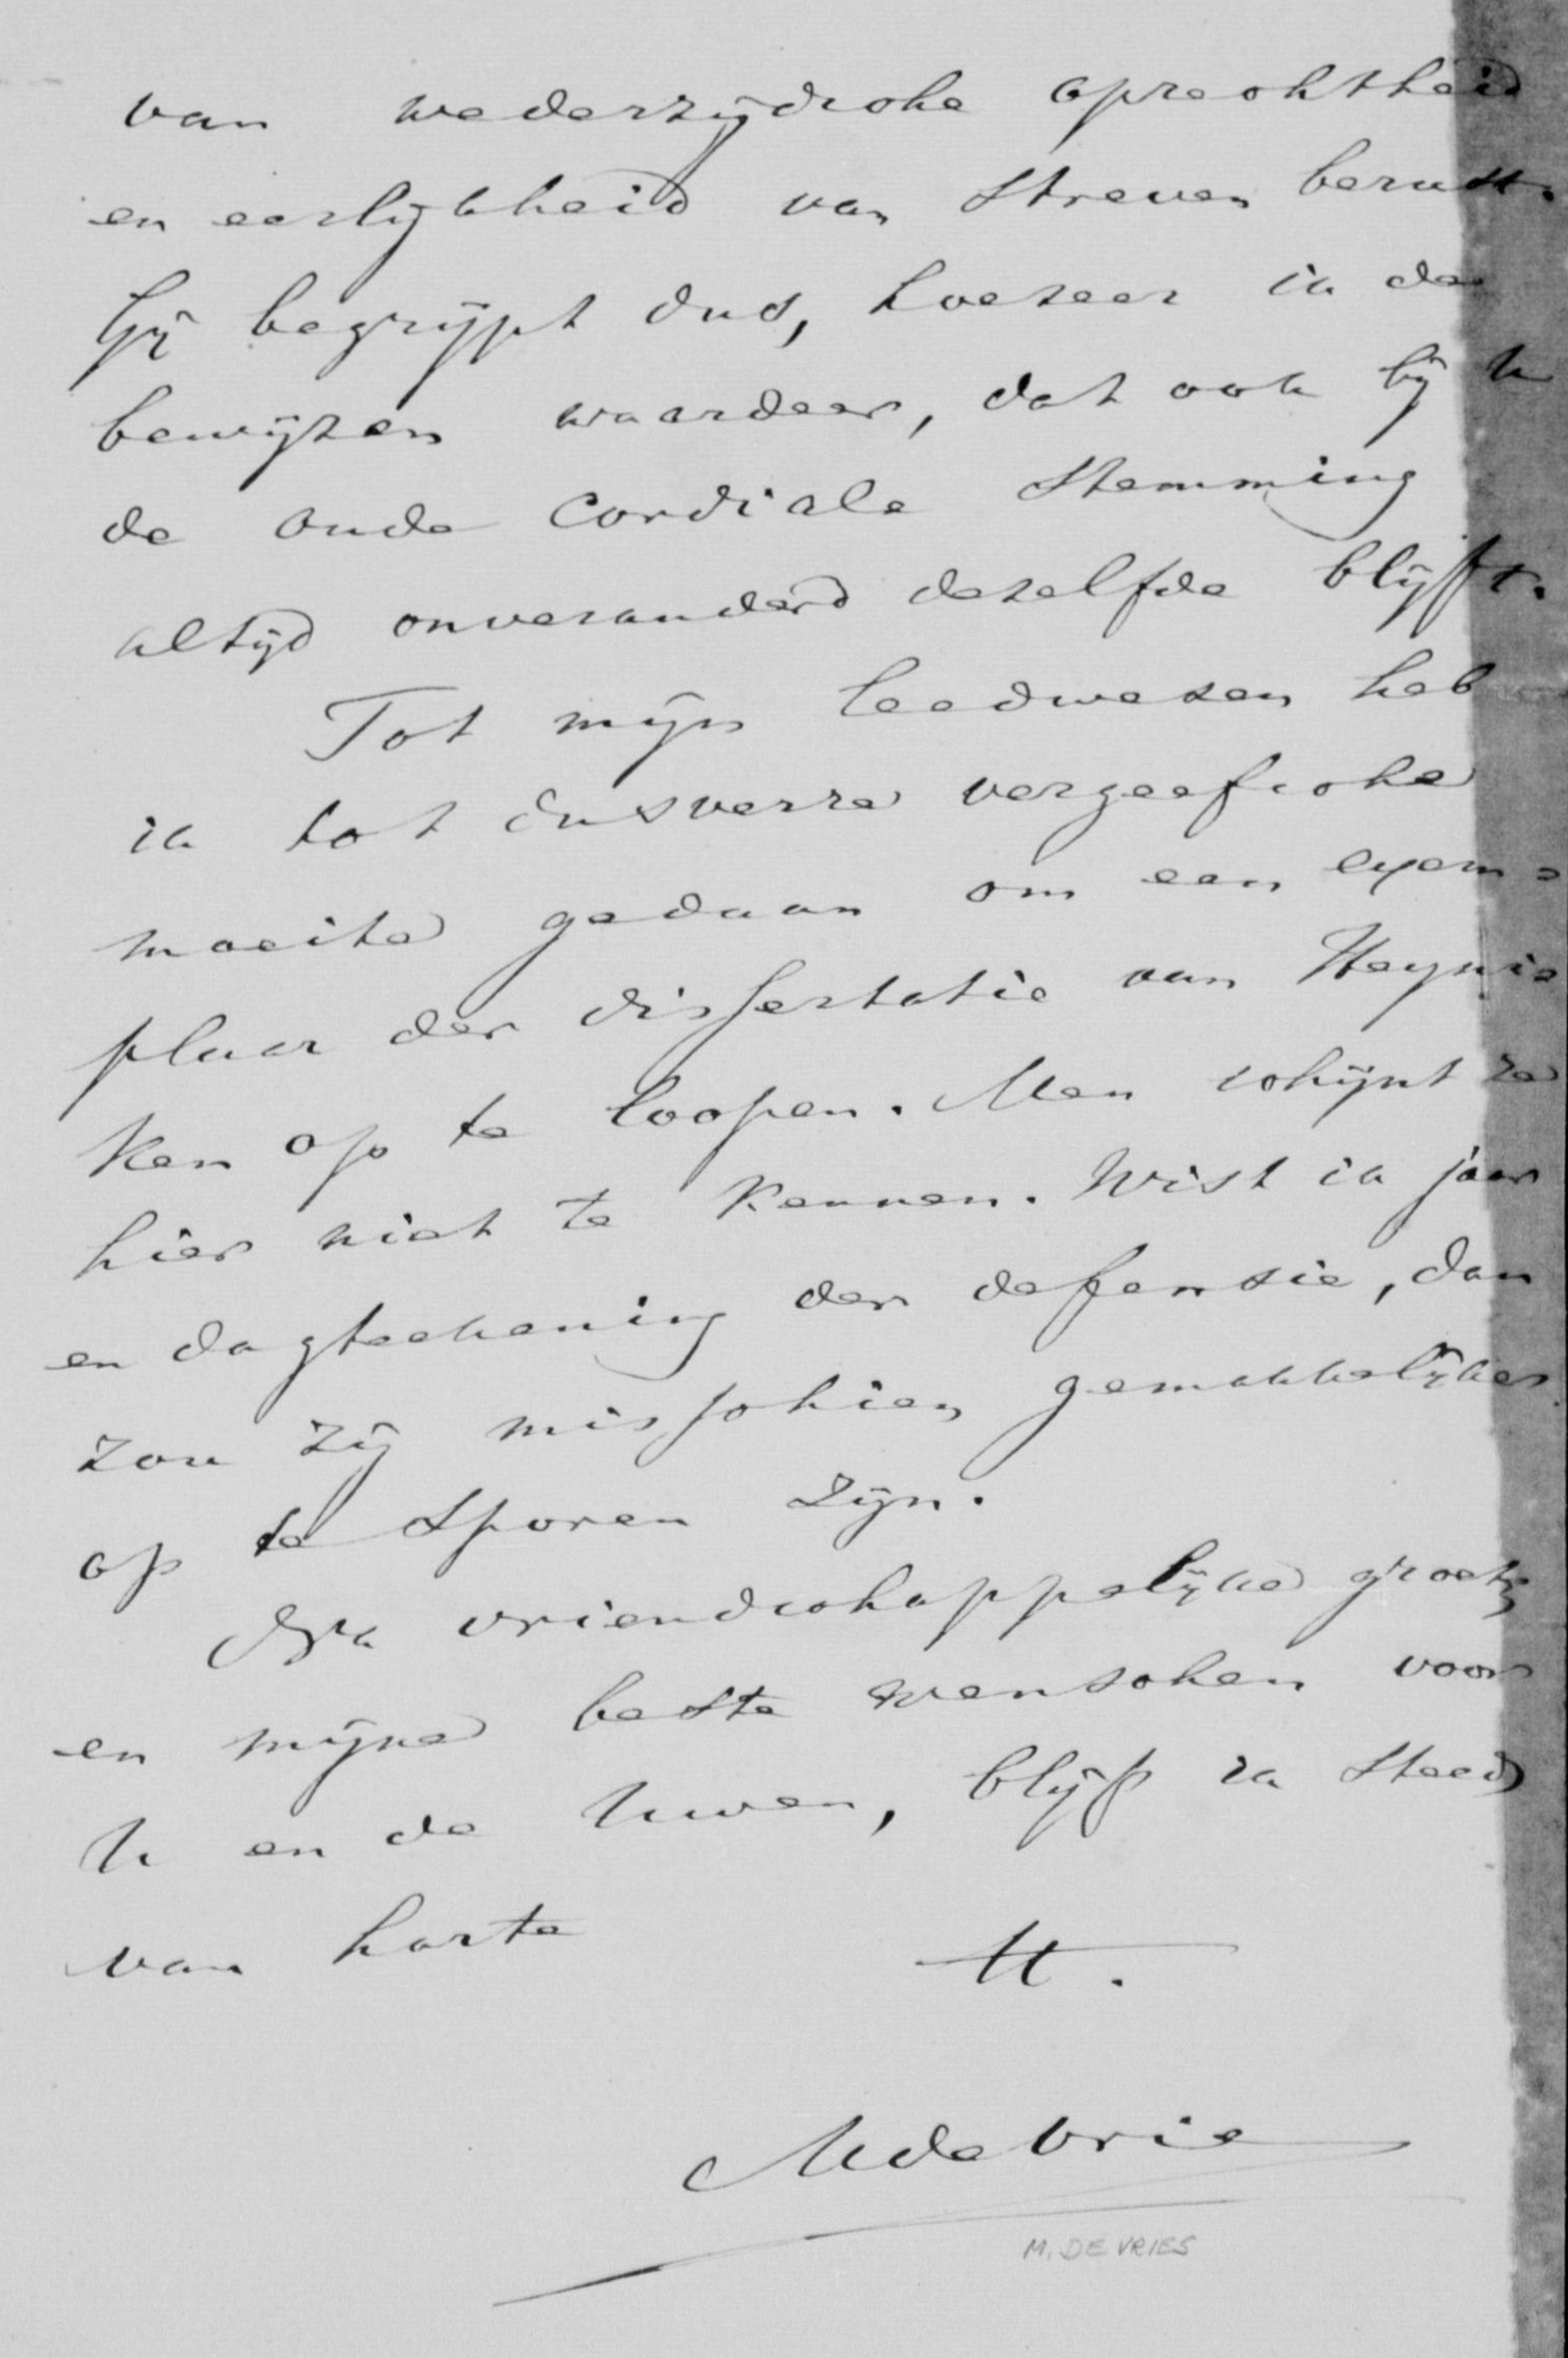 van wederzijdsche oprechtheid
en eerlijkheid van streven berust.
Gij begrijpt dus, hoezeer ik de
bewijzen waardeer, dat ook bij U
de oude cordiale stemming
altijd onveranderd dezelfde blijft.
Tot mijn leedwezen heb
ik tot dusverre vergeefsche
moeite gedaan om een exem=
plaar der dissertatie van
ken op te loopen. Men schijnt ze
hier niet te kennen. Wist ik jaar
en dagteekening der defensie, dan
zou zij misschien gemakkelijker
op te sporen zijn.
Na vriendschappelijke groete
en mijne beste wenschen voor
U en de Uwen, blijf ik steeds
van harte tt.
MdeVries
M. DE VRIES